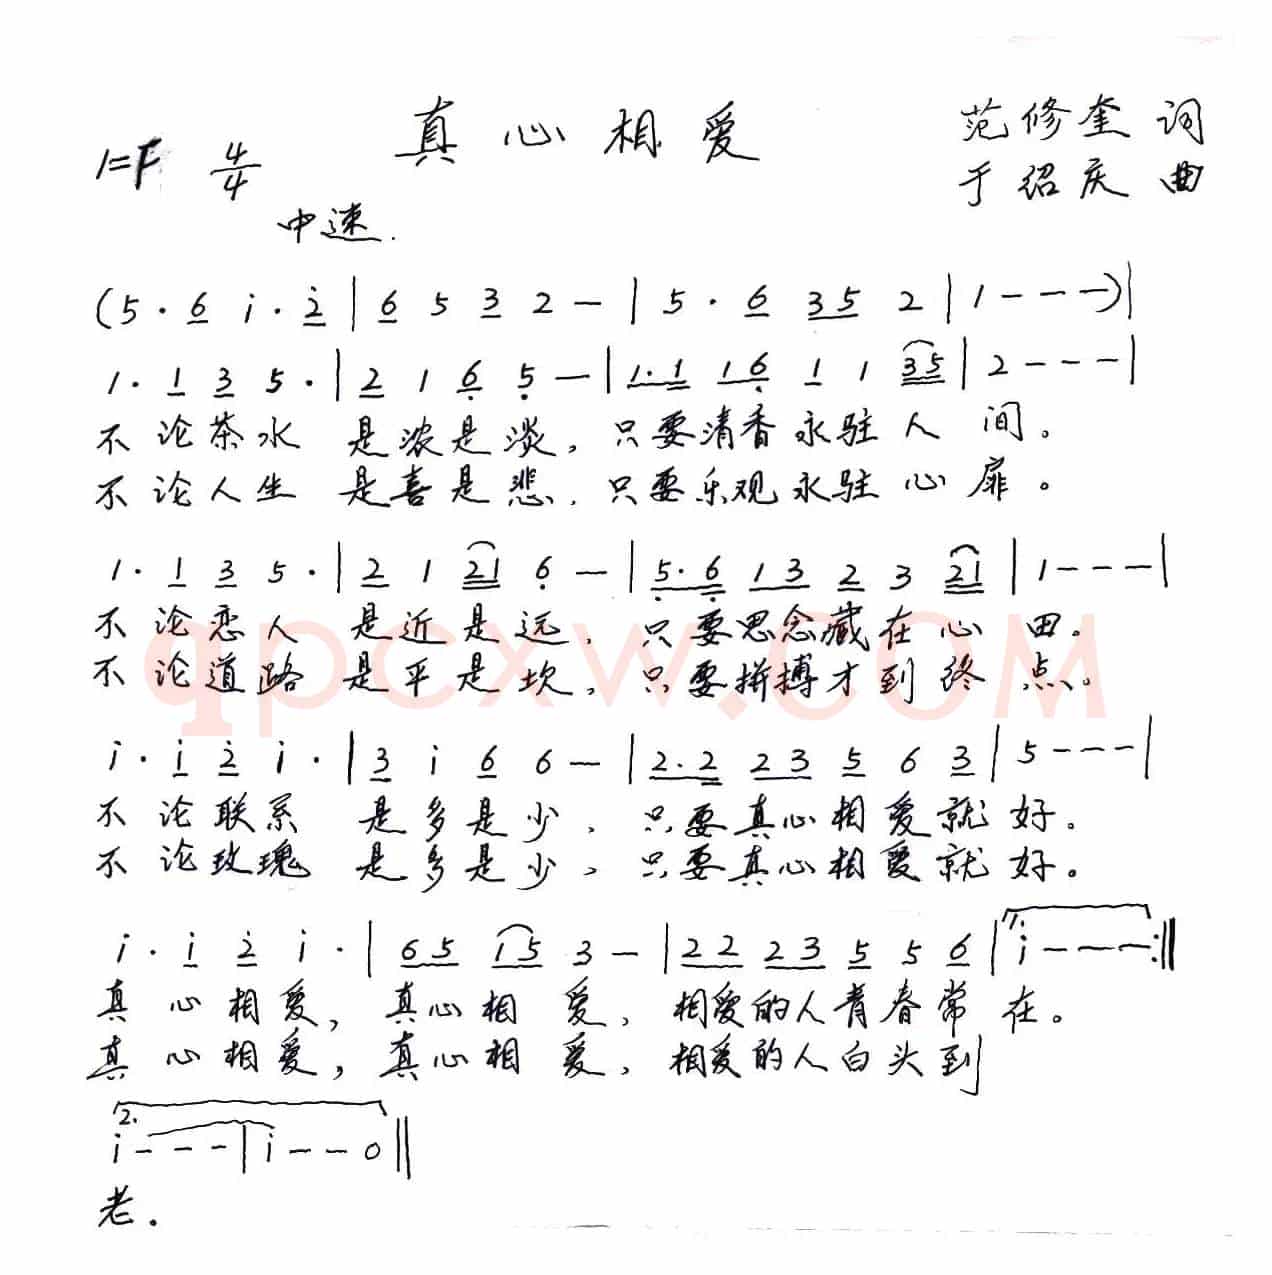 真心相爱
范修奎 词
1=F 4/4
于绍庆 曲
中速.
(5 · 6 i · 2̇ | 6 5 3 2 — | 5 · 6 3 5 2 | 1 - - - )|
1 · 1 3 5 · | 2 1 6̣ 5̣ — | 1 · 1 1 6̣ 1 1 3 5 | 2 - - - |
不论茶水 是浓是淡，只要清香永驻人间。
不论人生 是喜是悲，只要乐观永驻心扉。
1 · 1 3 5 · | 2 1 2 1 6̣ — | 5̣ · 6̣ 1 3 2 3 2 1 | 1 - - - |
不论恋人 是近是远，只要思念藏在心田。
不论道路 是平是坎，只要拼搏才到终点。
qpcxw.com
i · i 2̇ i · | 3 i 6 6 — | 2 · 2 2 3 5 6 3 | 5 - - - |
不论联系 是多是少，只要真心相爱就好。
不论玫瑰 是多是少，只要真心相爱就好。
i · i 2̇ i · | 6 5 i 5 3 — | 2 2 2 3 5 5 6 | 1. i - - - :‖
真心相爱，真心相爱，相爱的人青春常在。
真心相爱，真心相爱，相爱的人白头到
2. i - - - | i - - 0 ‖
老.